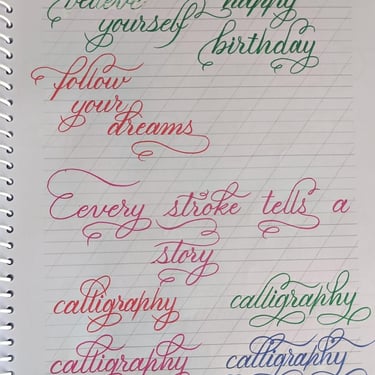 believe
yourself
happy
birthday
follow
your
dreams
Eevery stroke tells a
story
calligraphy
calligraphy
calligraphy
calligraphy